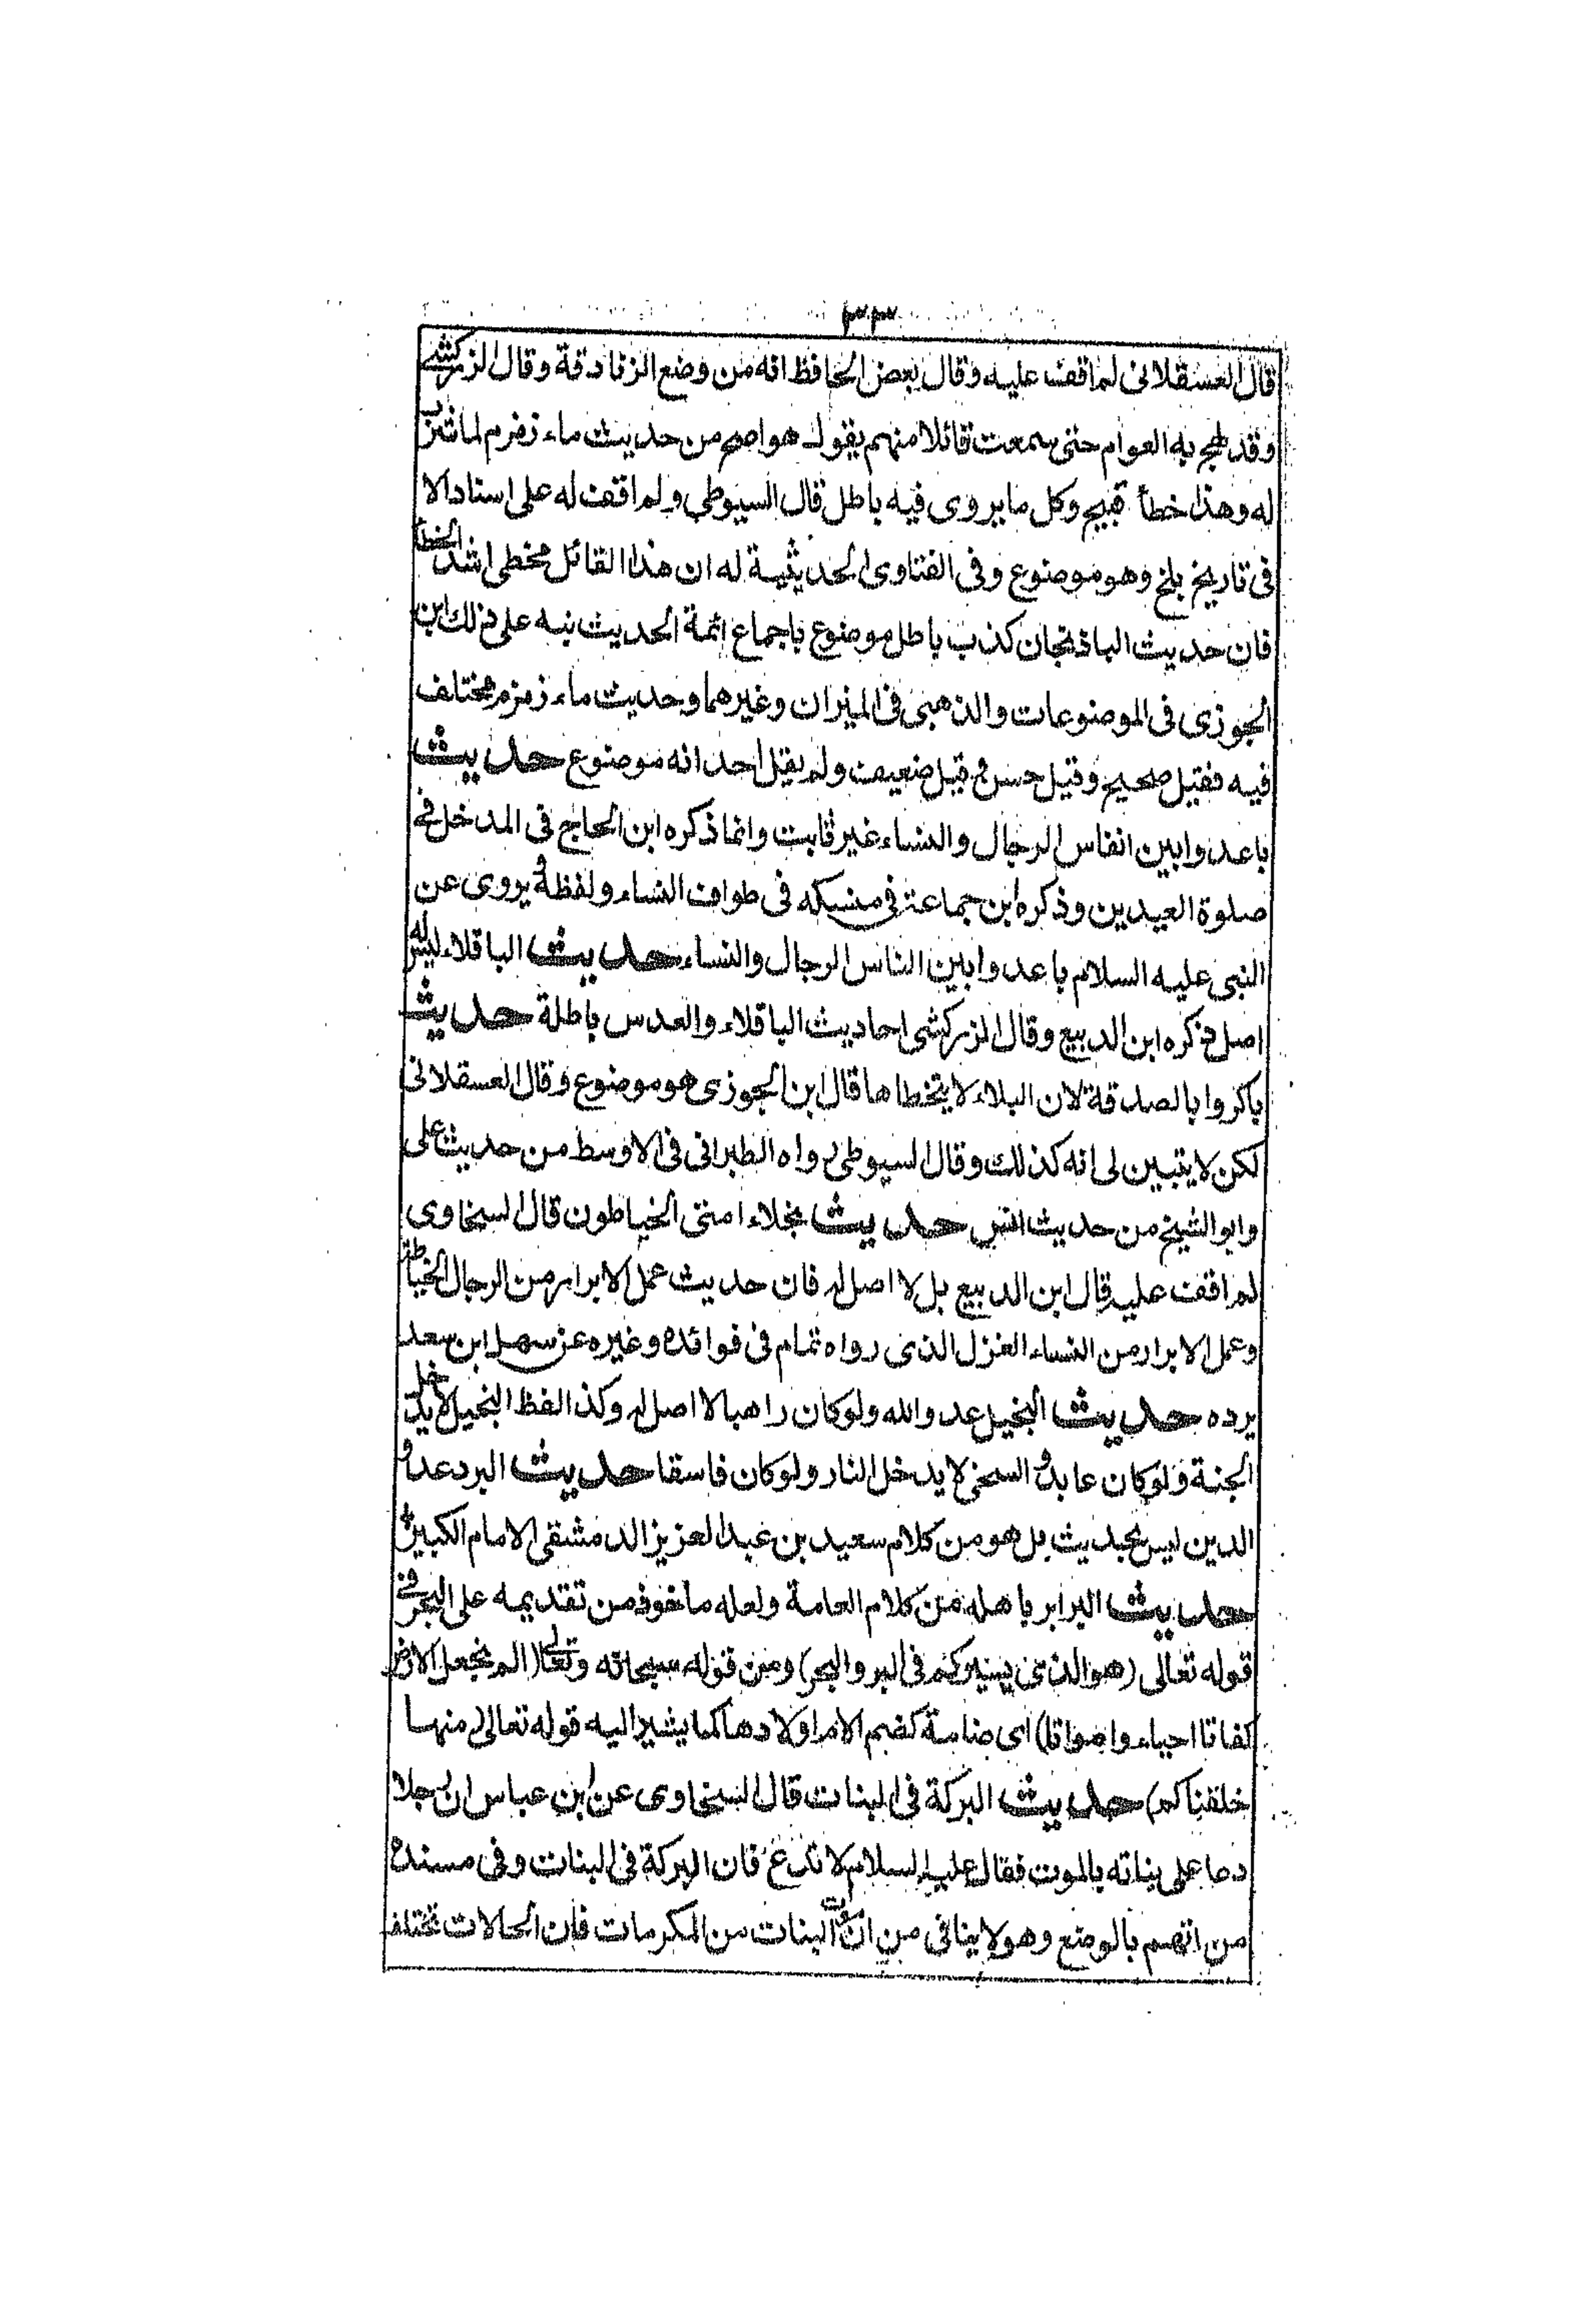 ٣٣
قال العسقلانى لم اقف عليه وقال بعض الحافظ انه من وضع الزنادقة وقال الزركشى
وقد لهج به العوام حتى سمعت قائلا منهم يقول هو اصح من حديث ماء زمزم لما شرب
له وهذا خطأ قبيح وكل ما يروى فيه باطل قال السيوطى ولم اقف له على اسناد الا
فى تاريخ بلخ وهو موضوع وفى الفتاوى الحديثية له ان هذا القائل مخطى اشد الخطأ
فان حديث الباذنجان كذب باطل موضوع باجماع ائمة الحديث نبه على ذلك ابن
الجوزى فى الموضوعات والذهبى فى الميزان وغيرهما وحديث ماء زمزم مختلف
فيه فقيل صحيح وقيل حسن وقيل ضعيف ولم يقل احد انه موضوع حديث
باعدوا بين انفاس الرجال والنساء غير ثابت وانما ذكره ابن الحاج فى المدخل فى
صلوة العيدين وذكره ابن جماعة فى منسكه فى طواف النساء ولفظه ويروى عن
النبى عليه السلام باعدوا بين الناس الرجال والنساء حديث الباقلاء ليس له
اصل ذكره ابن الديبع وقال الزركشى احاديث الباقلاء والعدس باطلة حديث
باكروا بالصدقة لان البلاء لا يتخطاها قال ابن الجوزى هو موضوع وقال العسقلانى
لكن لا يتبين لى انه كذلك وقال السيوطى رواه الطبرانى فى الاوسط من حديث على
وابو الشيخ من حديث انس حديث بخلاء امتى الخياطون قال السخاوى
لم اقف عليه قال ابن الديبع بل لا اصل له فان حديث عمل الابرار من الرجال الخياطة
وعمل الابرار من النساء الغزل الذى رواه تمام فى فوائده وغيره عن سهل ابن سعد
يرده حديث البخيل عدو الله ولو كان راهبا لا اصل له وكذا لفظ البخيل لا يدخل
الجنة ولو كان عابدا والسخى لا يدخل النار ولو كان فاسقا حديث البرد عدو
الدين ليس بحديث بل هو من كلام سعيد بن عبد العزيز الدمشقى الامام الكبير
حديث البر ابر باهله من كلام العامة ولعله ماخوذ من تقديمه على البحر فى
قوله تعالى (هو الذى يسيركم فى البر والبحر) ومن قوله سبحانه وتعالى (الم نجعل الارض
كفاتا احياء وامواتا) اى ضامة كضم الام اولادها كما يشير اليه قوله تعالى (منها
خلقناكم) حديث البركة فى البنات قال السخاوى عن ابن عباس ان رجلا
دعا على بناته بالموت فقال عليه السلام لا تدع فان البركة فى البنات وفى مسنده
من اتهم بالوضع وهو لا ينافى من ان موت البنات من المكرمات فان الحالات تختلف